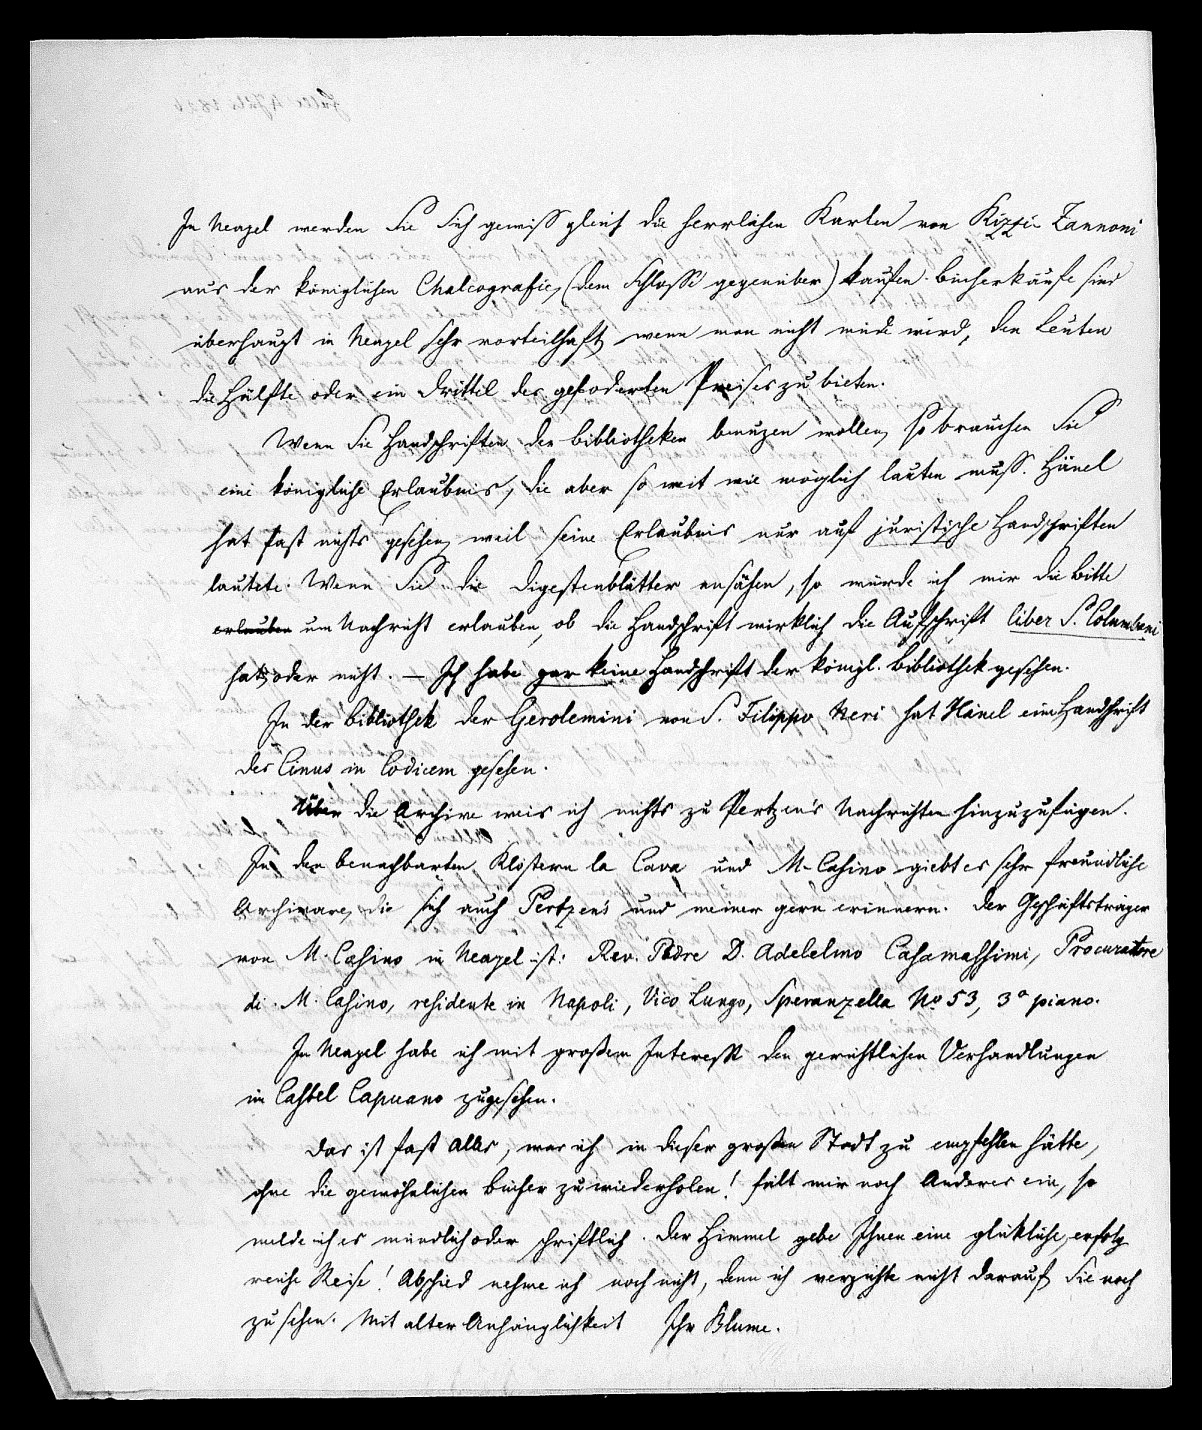 In Neapel werden Sie Sich gewiss gleich die herrlichen Karten von Rizzi-Zannoni
aus der königlichen Chalcografie, (dem Schlosse gegenüber) kaufen. Bücherkäufe sind
überhaupt in Neapel sehr vorteilhaft, wenn man nicht müde wird, den Leuten
die Hälfte oder ein Drittel des gefoderten Preises zu bieten.
Wenn Sie Handschriften der Bibliotheken benuzen wollen, so brauchen Sie
eine königliche Erlaubnis, die aber so weit wie möglich lauten muss. Hänel
hat fast nichts gesehen, weil seine Erlaubnis nur auf juristische Handschriften
lautete. Wenn Sie die Digestenblätter ansähen, so würde ich mir die Bitte
erlauben um Nachricht erlauben, ob die Handschrift wirklich die Aufschrift liber S. Columbani
hat, oder nicht. — Ich habe gar keine Handschrift der königl. Bibliothek gesehen.
In der Bibliothek der Gerolemini von S. Filippo Neri hat Hänel eine Handschrift
des Cinus in Codicem gesehen.
Über die Archive weis ich nichts zu Pertzen's Nachrichten hinzuzufügen.
In den benachbarten Klöstern la Cava und M. Casino giebt es sehr freundliche
Archivare, die sich auch Pertzens und meiner gern erinnern. Der Geschäftsträger
von M. Casino in Neapel ist: Rev. Padre D. Adelelmo Casamassimi, Procuratore
di M. Casino, residente in Napoli, Vico Lungo, Speranzella No 53, 3º piano.
In Neapel habe ich mit großem Interesse den gerichtlichen Verhandlungen
im Castel Capuano zugesehen.
Das ist fast alles, was ich in dieser großen Stadt zu empfehlen hätte,
ohne die gewöhnlichen Bücher zu wiederholen! fällt mir noch Anderes ein, so
melde ich es mündlich oder schriftlich. Der Himmel gebe Ihnen eine glükliche, erfolg
reiche Reise! Abschied nehme ich noch nicht, denn ich verzichte nicht darauf Sie noch
zu sehen. Mit alter Anhänglichkeit Ihr Blume.